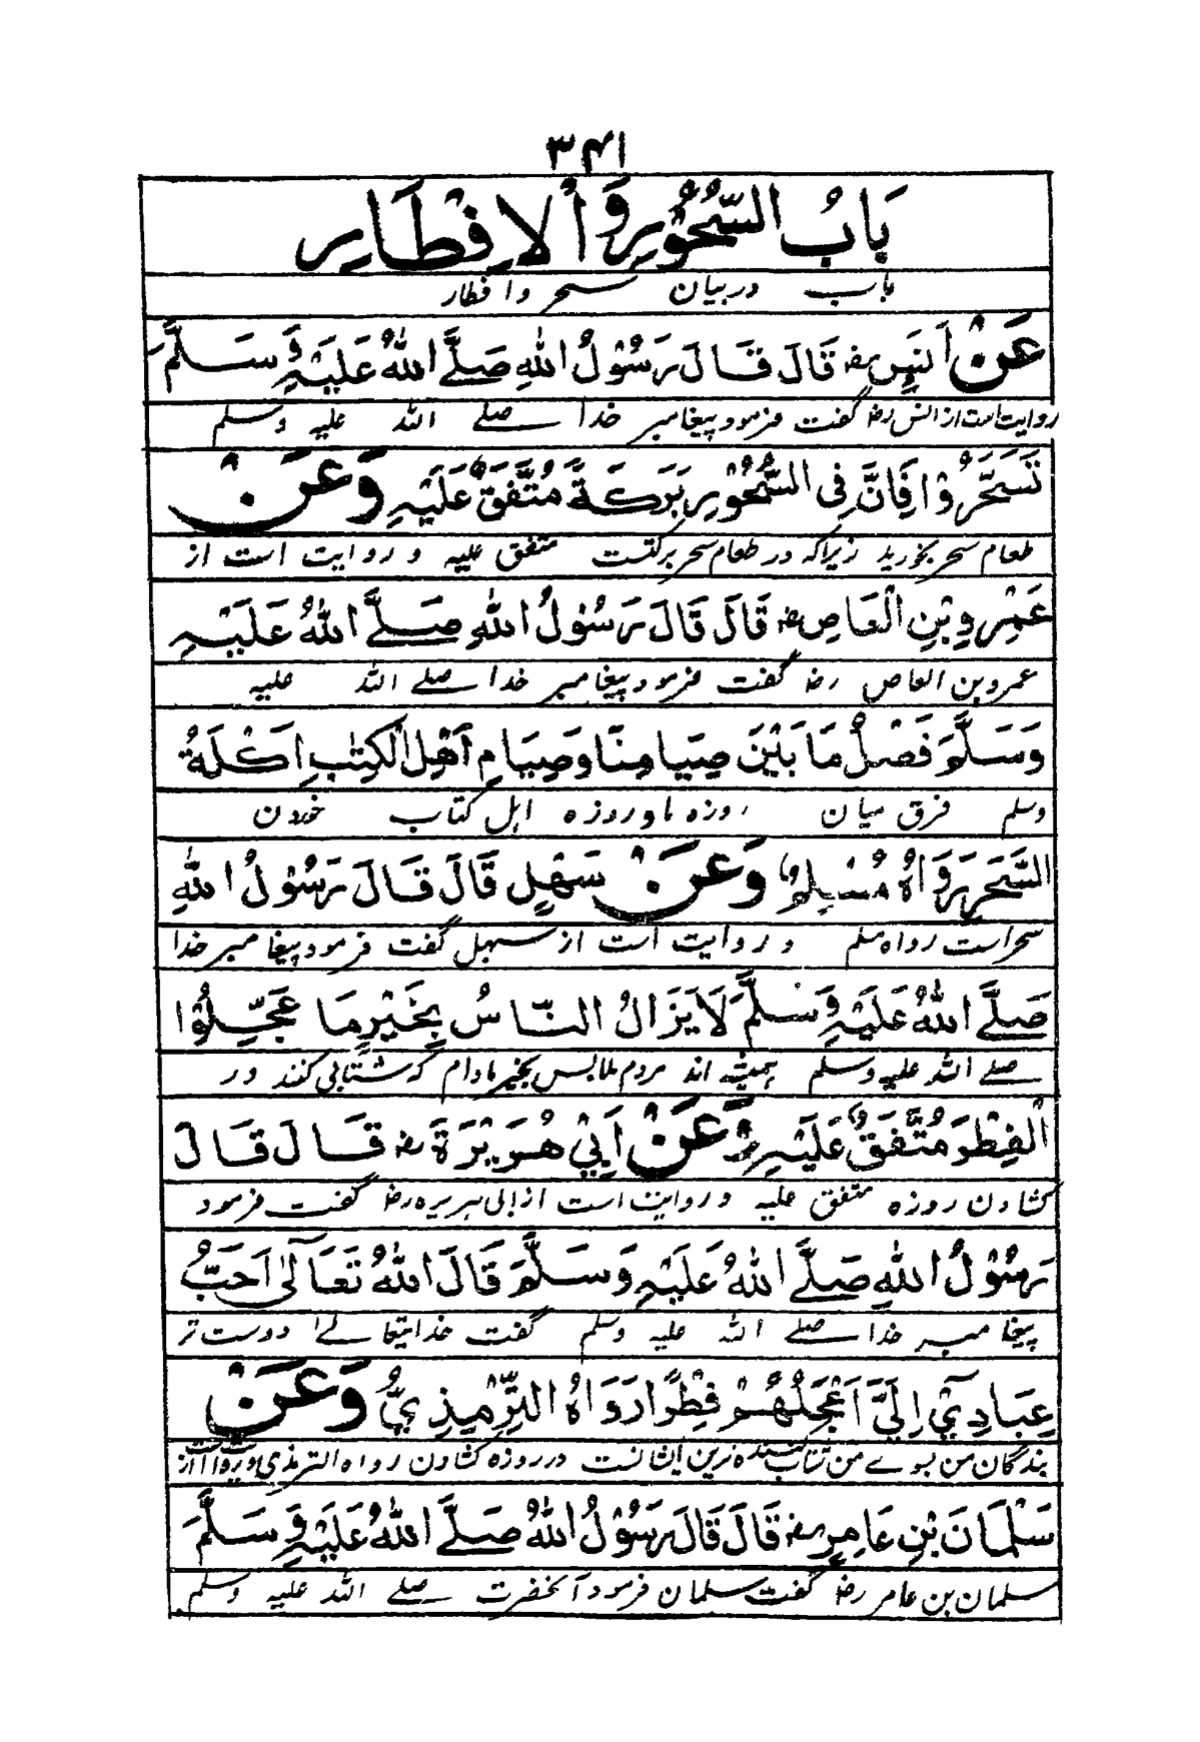 ۳۴۱
بَابُ السُّحُوْرِ وَالْاِفْطَارِ
باب دربیان سحر و افطار
عَنْ اَنَسٍ رض قَالَ قَالَ رَسُوْلُ اللّٰهِ صَلَّے اللّٰهُ عَلَيْهِ وَسَلَّمَ
روایت است از انس رض گفت فرمود پیغامبر خدا صلے اللہ علیہ وسلم
تَسَحَّرُوْا فَاِنَّ فِی السُّحُوْرِ بَرَكَةً مُتَّفَقٌ عَلَيْهِ وَعَنْ
طعام سحر بخورید زیراکہ در طعام سحر برکتست متفق علیہ و روایت است از
عَمْرِو بْنِ الْعَاصِ رض قَالَ قَالَ رَسُوْلُ اللّٰهِ صَلَّے اللّٰهُ عَلَيْهِ
عمرو بن العاص رضا گفت فرمود پیغامبر خدا صلے اللہ علیہ
وَسَلَّمَ فَصْلُ مَا بَيْنَ صِيَامِنَا وَصِيَامِ اَهْلِ الْكِتٰبِ اَكْلَةُ
وسلم فرق میان روزہ ما و روزہ اہل کتاب خوردن
السَّحَرِ رَوَاهُ مُسْلِمٌ وَعَنْ سَهْلٍ قَالَ قَالَ رَسُوْلُ اللّٰهِ
سحر است رواہ مسلم و روایت است از سہل گفت فرمود پیغامبر خدا
صَلَّے اللّٰهُ عَلَيْهِ وَسَلَّمَ لَا يَزَالُ النَّاسُ بِخَيْرٍ مَا عَجَّلُوْا
صلے اللہ علیہ وسلم ہمیشہ اند مردم ملابس بخیر مادام کہ شتابی کنند در
الْفِطْرَ مُتَّفَقٌ عَلَيْهِ وَعَنْ اَبِیْ هُرَيْرَةَ رض قَالَ قَالَ
کشادن روزہ متفق علیہ و روایت است از ابی ہریرہ رضا گفت فرمود
رَسُوْلُ اللّٰهِ صَلَّے اللّٰهُ عَلَيْهِ وَسَلَّمَ قَالَ اللّٰهُ تَعَالٰی اَحَبُّ
پیغامبر خدا صلے اللہ علیہ وسلم گفت خدایتعالےٰ دوست تر
عِبَادِیْ اِلَیَّ اَعْجَلُهُمْ فِطْرًا رَوَاهُ التِّرْمِذِیُّ وَعَنْ
بندگان من بسوے من شتاب کنندہ ترین ایشانست در روزہ کشادن رواہ الترمذی و روایت است از
سَلْمَانَ بْنِ عَامِرٍ رض قَالَ قَالَ رَسُوْلُ اللّٰهُ صَلَّے اللّٰهُ عَلَيْهِ وَسَلَّمَ
سلمان بن عامر رضا گفت سلمان فرمود آنحضرت صلے اللہ علیہ وسلم